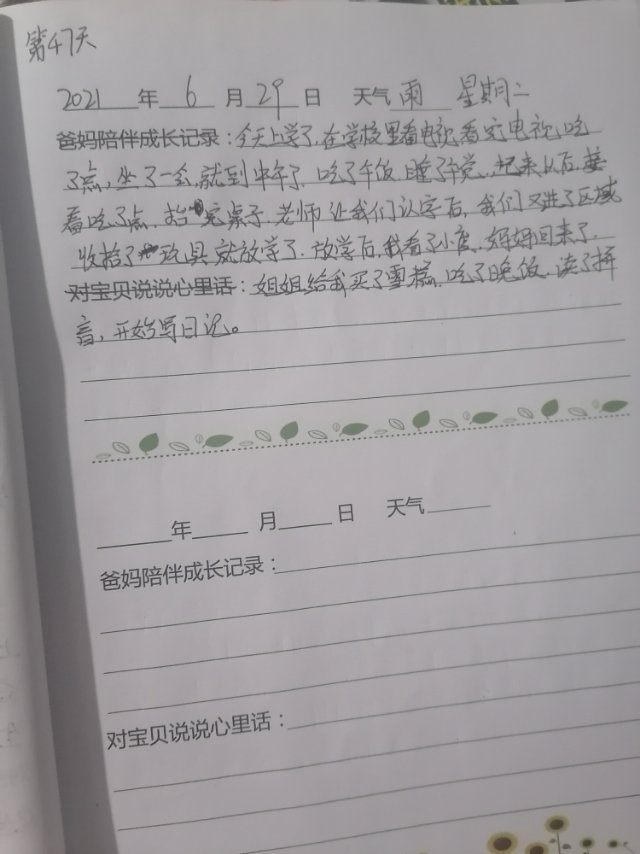 第47天
2021年6月29日 天气雨 星期二
爸妈陪伴成长记录：今天上学了，在学校里看电视，看完电视，吃
了点，坐了一会，就到中午了，吃了午饭，睡了午觉，起来以后，接
着吃了点，抬完桌子，老师让我们认字后，我们又进了区域
收拾了玩具就放学了，放学后，我看了小度，妈妈回来了，
对宝贝说说心里话：姐姐给我买了雪糕，吃了晚饭，读了拼
音，开始写日记。
年 月 日 天气
爸妈陪伴成长记录：
对宝贝说说心里话：